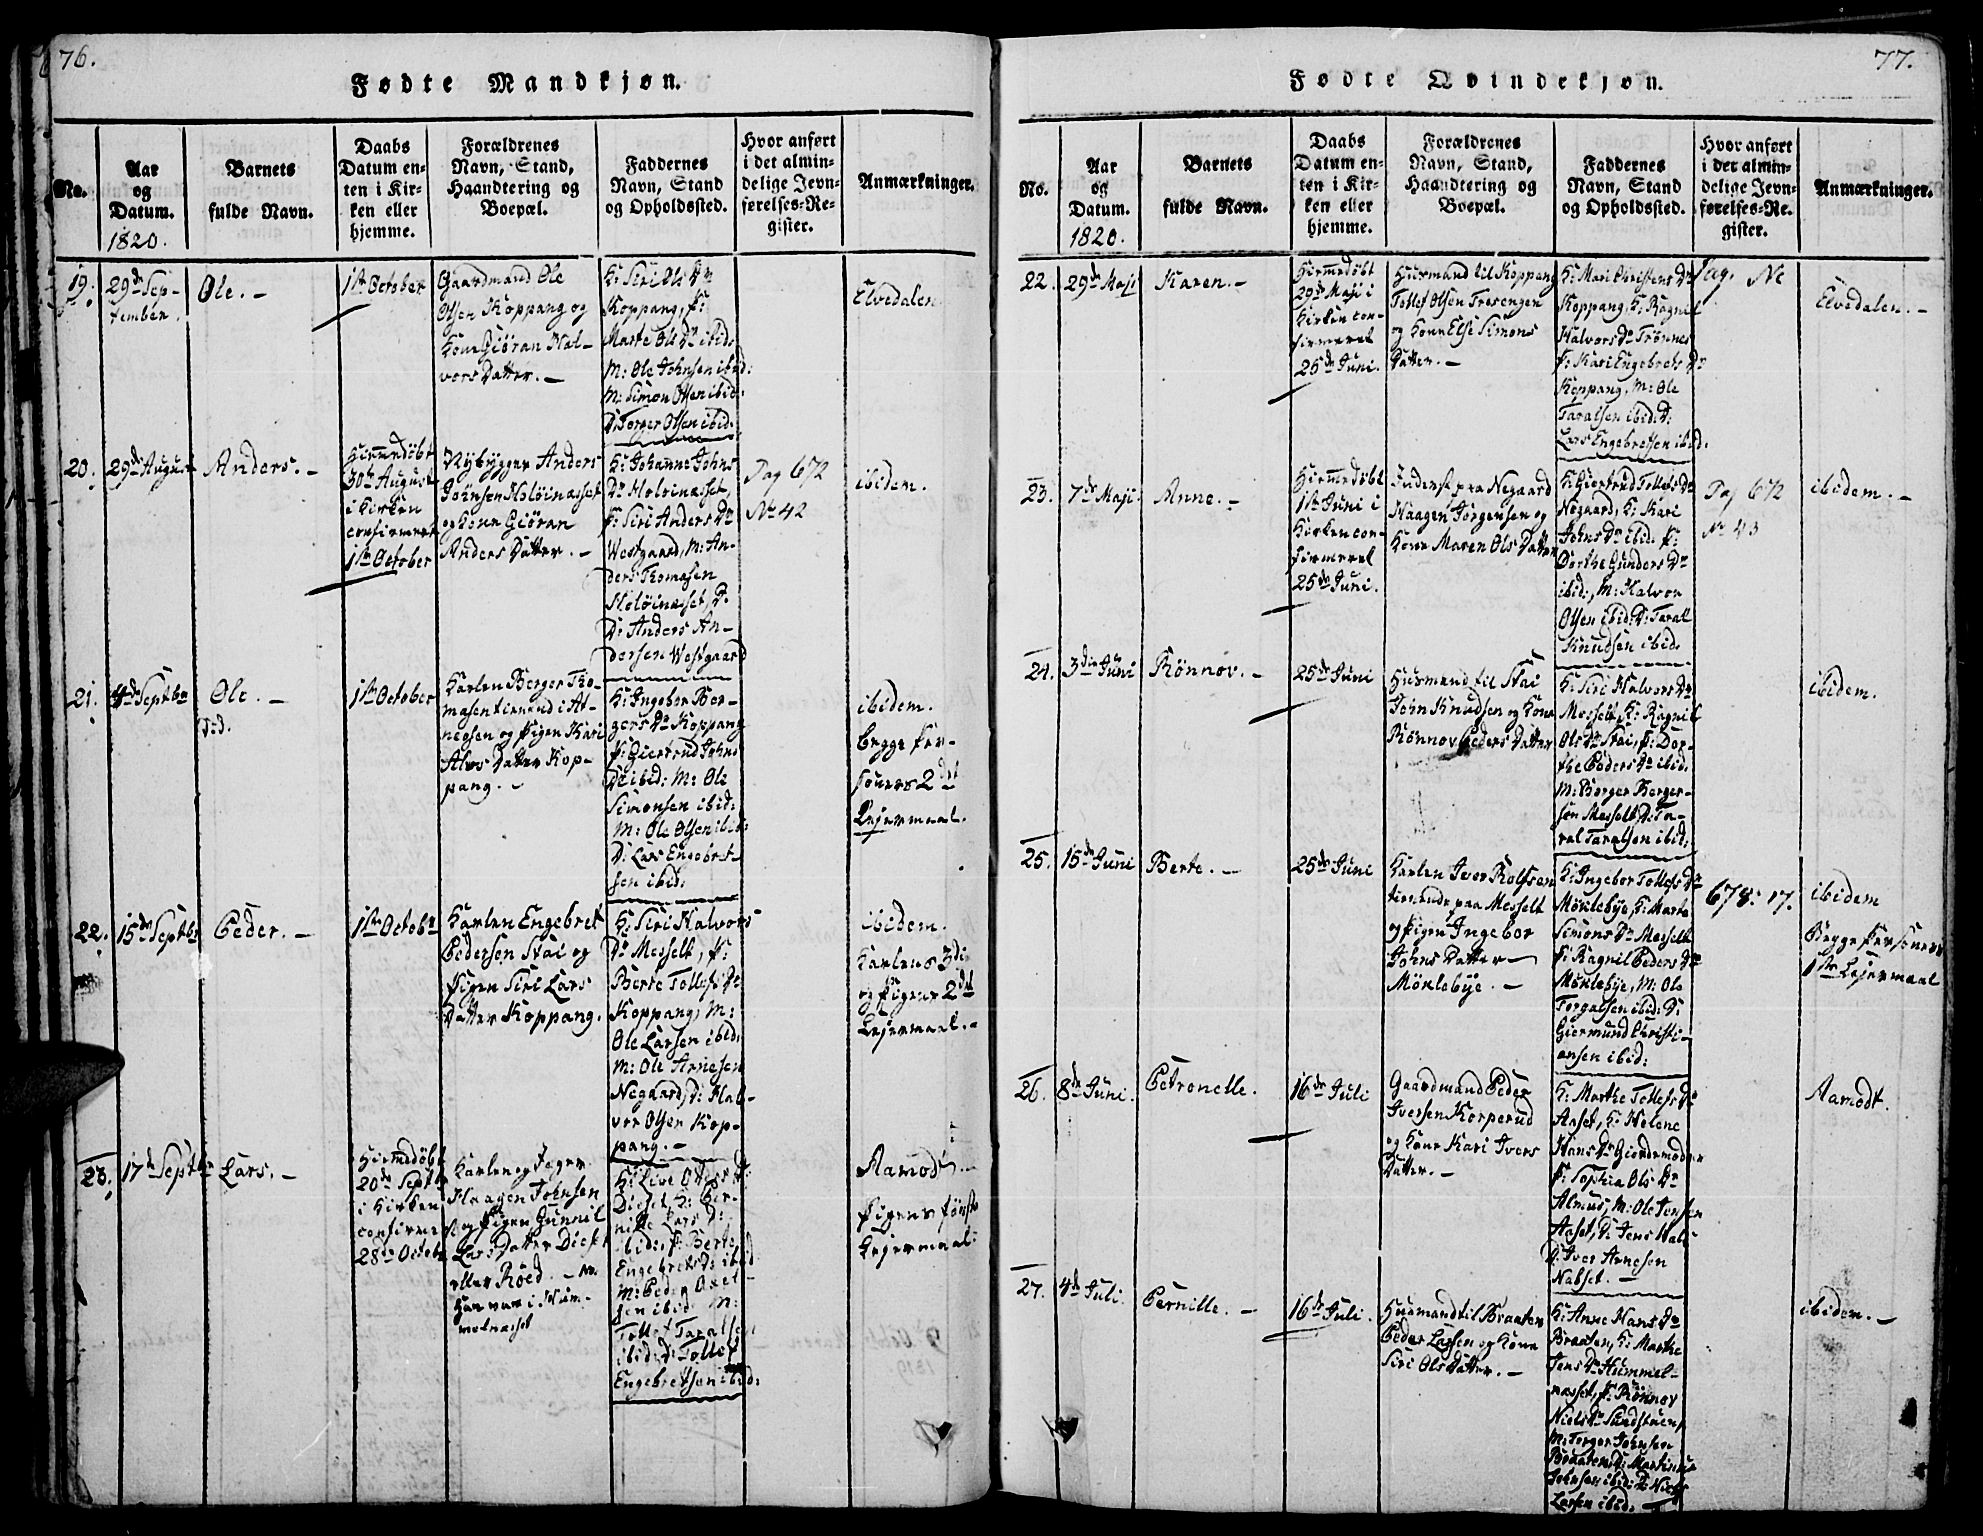 76.
Fødte Mandkjøn.
No.
Aar
og
Datum.
1820.
Barnets
fulde Navn.
Daabs
Datum en-
ten i Kir-
ken eller
hjemme.
Forældrenes
Navn, Stand,
Haandtering og
Boepæl.
Faddernes
Navn, Stand
og Opholdssted.
Hvor anført
i det almin-
delige Jevn-
førelses-Re-
gister.
Anmærkninger.
19.
29de Sep-
tember.
Ole. -
1ste October
Gaardmand Ole
Olsen Koppang og
Kone Giöran Hal-
vors Datter. -
K: Siri Ols Dr
Koppang, P:
Marte Ols Dr ibid:
M: Ole Johnsen ibid:
M: Simon Olsen ibid:
D: Torger Olsen ibid:
Elvedalen.
20.
29de August
Anders. -
Hiemmedöbt
30te August
i Kirken
confirmeret
1ste October
Nybygger Anders
Johnsen Holöinæsset
og Kone Giöran
Anders Datter. -
K: Johanne Johns
Dr Holöinæsset,
P: Siri Anders Dr
Westgaard, M: An-
ders Thomasen
Holöinæsset, D.
D: Anders An-
dersen Westgaard
Pag 672
No 42
ibidem.
21.
4de Septbr
Ole. -
T:d.
1ste October
Karlen Berger Tho-
masen tienend i At-
neosen og Pigen Kari
Alvs Datter Kop-
pang. -
K: Ingebor Ber-
gers Dr Koppang
P: Giertrud Johns
Dr ibid: M: Ole
Simonsen ibid:
M: Ole Olsen ibid:
D: Lars Engebret-
sen ibid:
ibidem.
begge Per-
soners 2det
Lejermaal.
22.
15de Septbr
Peder. -
1ste Octobr
Karlen Engebret
Pedersen Stai og
Pigen Siri Lars
Datter Koppang.
K: Siri Halvors
Dr Messelt, P:
Berte Tollefs Dr
Koppang, M:
Ole Larsen ibid:
M: Ole Arnesen
Negaard, D: Hal-
vor Olsen Kop-
pang. -
ibidem.
Karlens 3die
og Pigens 2det
Lejermaal. -
23.
17de Septbr
Lars. -
Hiemmedöbt
20de Septbr
i Kirken
confirmeret
28de Octobr
Karlen og Jeger
Haagen Johnsen
og Pigen Gunnil
Lars Datter Diest
eller Röed. -
Han var i Hum-
melnæsset
K: Live
Lars Dr
ibid: P: Berte
Engebrets Dr ibid
M: Peder
sen ibid M:
Tollef Taralsen
ibid: D: Tollef
Engebretsen ibid:
Aamodt. -
Pigens förste
Lejermaal:
77.
Fødte Qvindekjøn.
No.
Aar
og
Datum.
1820.
Barnets
fulde Navn.
Daabs
Datum en-
ten i Kir-
ken eller
hjemme.
Forældrenes
Navn, Stand,
Haandtering og
Boepæl.
Faddernes
Navn, Stand
og Opholdssted.
Hvor anført
i det almin-
delige Jevn-
førelses-Re-
gister.
Anmærkninger.
22.
29de Maji
Karen. -
Hiemmedöbt
29de Maji i
Kirken con-
firmeret
25de Juni.
Husmand til Koppang
Tollef Olsen Trosengen
og Kone Else Simons
Datter. -
K: Mari Christens Dr
Koppang, K: Ragnil
Halvors Dr Trönnes
P: Kari Engebrets Dr
Koppang, M: Ole
Taralsen ibid: D:
Lars Engebretsen ibid:
Pag. No
Elvedalen. -
23.
7de Maji.
Anne. -
Hiemmedöbt
1ste Juni i
Kirken con-
firmeret
25de Juni.
Inderst paa Negaard
Haagen Jörgensen og
Kone Maren Ols Datter
K: Giertrud Tollefs Dr
Negaard, K: Kari
Johns Dr ibid: P:
Dorthe Gunders Dr
ibid:, M: Halvor
Olsen ibid: D: Taral
Knudsen ibid:
Pag 672
No 43
ibidem. -
24.
3die Juni
Rönnov. -
25de Juni
Husmand til Stai
John Knudsen og Kone
Rönnov Peders Datter
K: Siri Halvors Dr
Messelt, K: Ragnil
Ols Dr Stai, P: Dor-
the Peders Dr ibid:
M: Berger Berger-
sen Messelt D: Ta-
ral Taralsen ibid:
ibidem.
25.
15de Juni
Berte. -
25de Juni
Karlen Iver Rolfsen
tienende paa Messelt
og Pigen Ingebor
Johns Datter -
Möklebÿe. -
K: Ingebor Tollefs Dr
Möklebÿe, K: Marte
Simons Dr Messelt
P: Ragnil Peders Dr
Möklebÿe, M: Ole
Torgalsen ibid: D:
Giermund Christi-
ansen ibid:
678: 17.
ibidem
Begge Personers
1ste Lejermaal
26.
8de Juni.
Petronelle.
16de Juli
Gaardmand Peder
Iversen Korperud
og Kone Kari Ivers
Datter. -
K: Marthe Tollefs Dr
Aaset, K: Helene
Hans Dr Giördemoder
P: Sophia Ols Dr
Almus, M: Ole Jensen
Aaset, D: Jens
D: Iver Arnesen
Nabset. -
Aamodt.
27.
4de Juli.
Pernille. -
16de Juli.
Husmand til Braaten
Peder Larsen og Kone
Siri Ols Datter. -
K: Anne Hans Dr
Braaten, K: Marthe
Jens Dr Hummel-
næsset, P: Rönnov
Niels Dr Sundstuen,
M: Torger Johnsen
Braaten D: Martinus
Johnsen ibid: D: Niels
Larsen ibid: -
ibidem. -